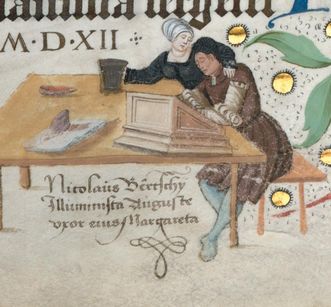 M·D·XII
Nicolaus Bertschy
Illuminista Auguste
uxor eius Margareta